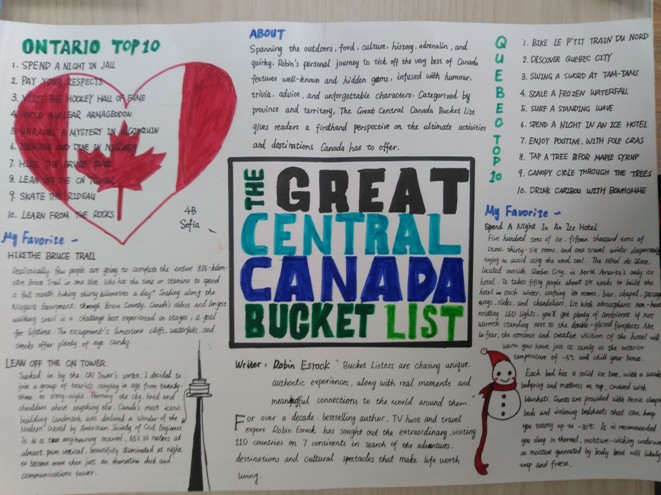 ONTARIO TOP 10
1. SPEND A NIGHT IN JAIL
2. PAY YOUR RESPECTS
3. VISIT THE HOCKEY HALL OF FAME
4. AVOID NUCLEAR ARMAGEDDON
5. UNRAVEL A MYSTERY IN ALGONQUIN
6. AND DINE IN NIAGARA
7. HIKE THE BRUCE TRAIL
8. LEAN OFF THE CN TOWER
9. SKATE THE RIDEAU
10. LEARN FROM THE ROCKS
4B
Sofia
My Favorite ~
HIKE THE BRUCE TRAIL
Realistically few people are going to complete the entire
Bruce Trail in one
a full month hiking thirty kilometres a day? Snaking along the
Niagara Escarpment, through Bruce County, Canada's oldest and longest
walking trail is a challenge best experienced in stages, a goal
for lifetime. The escarpment's limestone cliffs, waterfalls, and
creeks offer plenty of eye candy.
LEAN OFF THE CN TOWER
Sucked in by the CN Tower's vortex, I decided to
join a group of tourists ranging in age from twenty-
three to sixty-eight.
shoulders above anything else, Canada's most iconic
building landmark was declared a wonder of the
Modern World by American Society of Civil Engineers.
It is a engineering marvel, metres of
almost pure vertical, beautifully illuminated at night,
to become more than just an observation deck and
communications tower.
ABOUT
Spanning the outdoors, food, culture, history, adrenalin, and
quirky, Robin's personal journey to tick off the very best of Canada
features well-known and hidden gems, infused with humour,
trivia, advice, and unforgettable characters. Categorised by
province and territory, The Great Central Canada Bucket List
gives readers a firsthand perspective on the ultimate activities
and destinations Canada has to offer.
THE GREAT
CENTRAL
CANADA
BUCKET LIST
Writer: Robin Esrock "Bucket Listers are chasing unique,
authentic experiences, along with real moments and
meaningful connections to the world around them."
For over a decade, bestselling author, TV host and travel
expert Robin Esrock has sought out the extraordinary, visiting
110 countries on 7 continents in search of the adventures,
destinations and cultural spectacles that make life worth
living.
QUEBEC TOP 10
1. BIKE LE P'TIT TRAIN DU NORD
2. DISCOVER QUEBEC CITY
3. SWING A SWORD AT TAM-TAMS
4. SCALE A FROZEN WATERFALL
5. SURF A STANDING WAVE
6. SPEND A NIGHT IN AN ICE HOTEL
7. ENJOY POUTINE, WITH FOLE GRAS
8. TAP A TREE FOR MAPLE SYRUP
9. CANOPY CIRLE THROUGH THE TREES
10. DRINK CARIBOU WITH BONHOMME
My Favorite ~
Spend A Night In An Ice Hotel
Five hundred tons of ice, fifteen thousand tons of
snow, thirty-six rooms, and one travel writer
trying to avoid using the washroom. The Hôtel de Glace,
located outside Quebec City, is North America's only ice
hotel. It takes fifty people about six weeks to build the
hotel in each winter, crafting its rooms, bar, chapel, passage
ways, slides, and chandeliers. Lit with atmospheric non-heat
emitting LED lights, you'll get plenty of ambience if not
warmth standing next to the double-glassed fireplaces.
the romance and creative vision of the hotel will
warm your heart, just as surely as the interior
temperature of -5°C will chill your bones.
Each bed has a solid ice base, with a wooden
boxspring and mattress on top, covered with
blankets. Guests are provided with Arctic sleeping
bags and isolating bedsheets that can keep
you toasty up to -30°C. It is recommended
you sleep in thermal, moisture-wicking underwear
as moisture generated by body heat will likely
up and freeze.